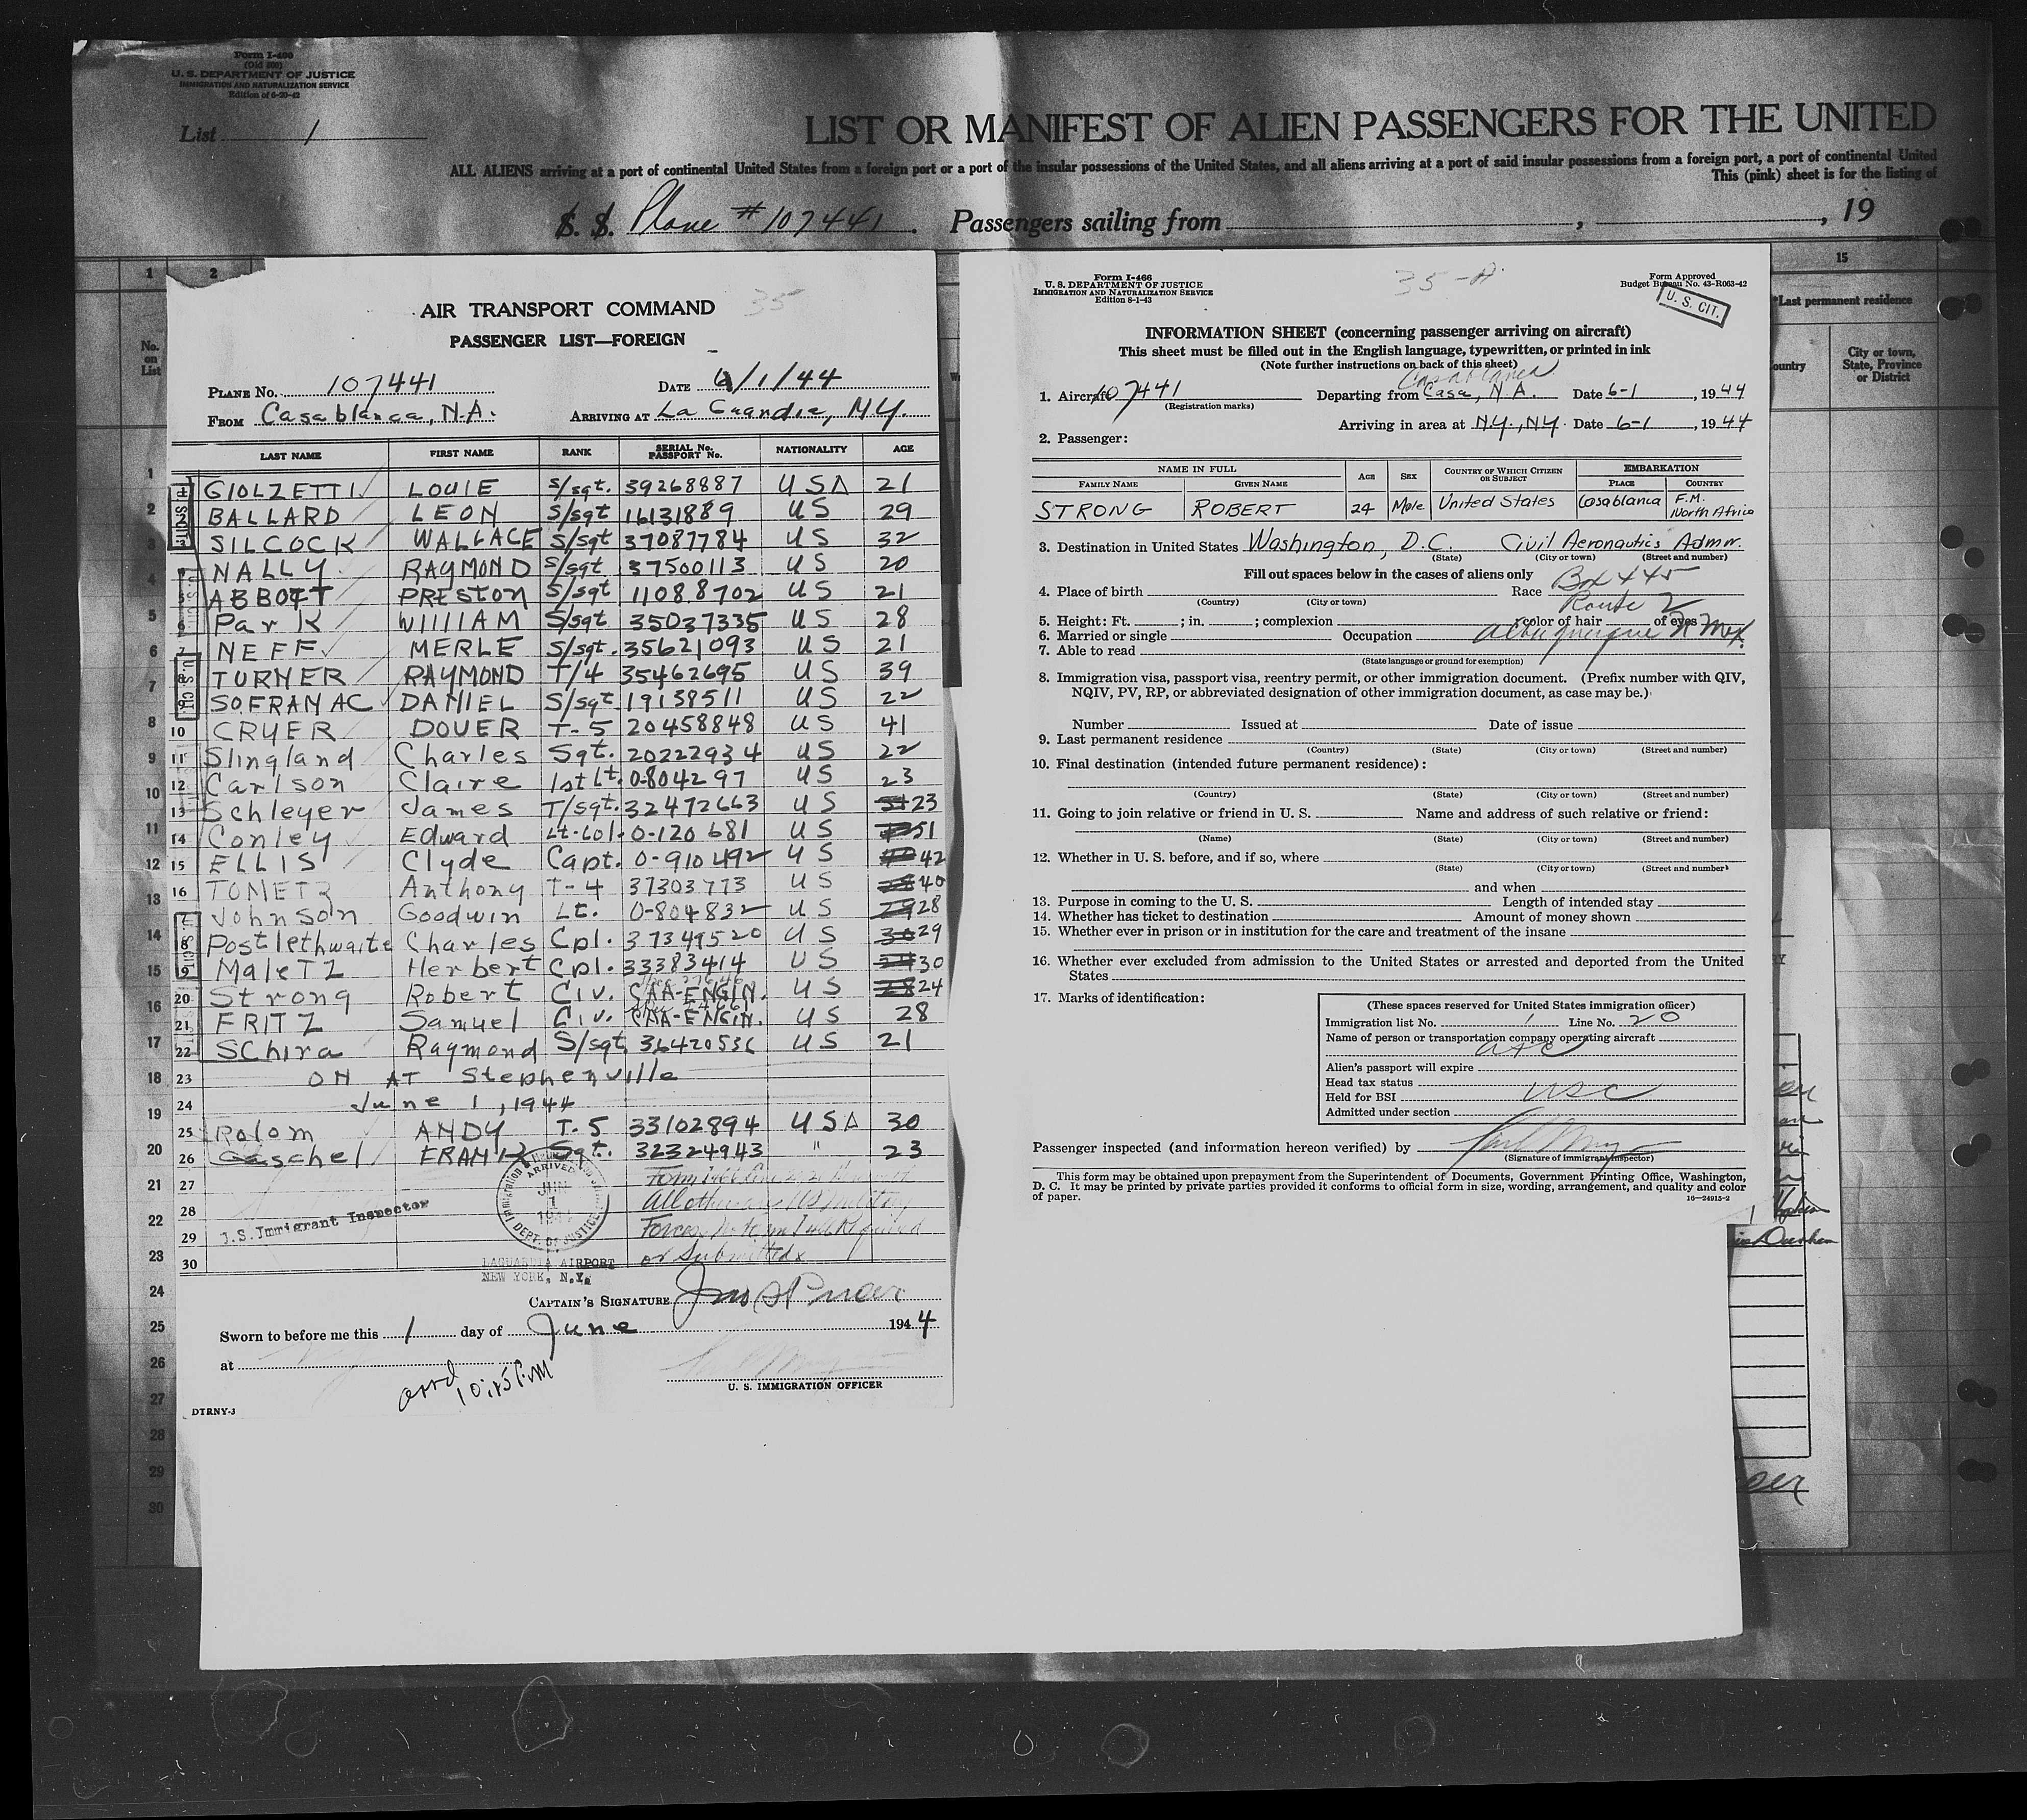 Form I-400
(Old 500)
U. S. DEPARTMENT OF JUSTICE
IMMIGRATION AND NATURALIZATION SERVICE
Edition of 6-20-42
List 1
LIST OR MANIFEST OF ALIEN PASSENGERS FOR THE UNITED
ALL ALIENS arriving at a port of continental United States from a foreign port or a port of the insular possessions of the United States, and all aliens arriving at a port of said insular possessions from a foreign port, a port of continental United
This (pink) sheet is for the listing of
S. S. Plane # 107441. Passengers sailing from , , 19
1 2
No. on List
AIR TRANSPORT COMMAND 35
PASSENGER LIST—FOREIGN
PLANE No. 107441 DATE 6/1/44
FROM Casablanca, N.A. ARRIVING AT La Guardia, N.Y.
LAST NAME FIRST NAME RANK SERIAL No. PASSPORT No. NATIONALITY AGE
GIOLZETTI LOUIE S/sgt. 39268887 USA 21
BALLARD LEON S/sgt 16131889 US 29
SILCOCK WALLACE S/sgt 37087784 US 32
NALLY RAYMOND S/sgt 37500113 US 20
ABBOTT PRESTON S/sgt 11088702 US 21
Park WILLIAM S/sgt 35037335 US 28
NEFF MERLE S/sgt. 35621093 US 21
TURNER RAYMOND T/4 35462695 US 39
SOFRANAC DANIEL S/sgt 19138511 US 22
10 CRYER DOVER T-5 20458848 US 41
11 Slingland Charles Sgt. 20222934 US 22
12 Carlson Claire 1st Lt. 0-804297 US 23
13 Schleyer James T/sgt. 32472663 US 23
14 Conley Edward Lt-Col. 0-120681 US 51
15 ELLIS Clyde Capt. 0-910492 US 42
16 TOMETZ Anthony T-4 37303773 US 40
Johnson Goodwin Lt. 0-804832 US 28
18 Postlethwaite Charles Cpl. 37349520 US 29
19 MaleTZ Herbert Cpl. 33383414 US 30
20 Strong Robert Civ. CAA-ENGIN. US 24
21 FRITZ Samuel Civ. CAA-ENGIN. US 28
22 SChira Raymond S/sgt. 36420536 US 21
23 ON AT Stephenville
24 June 1, 1944
25 Rolom ANDY T.5 33102894 USA 30
26 Geschel FRANK Sgt. 32324943 " 23
27
28 All others are US military
29 Forces.
30 or Submitted
U.S. Immigrant Inspector
ARRIVED
JUN 1
DEPT. OF JUSTICE
LAGUARDIA AIRPORT
NEW YORK, N.Y.
CAPTAIN'S SIGNATURE
Sworn to before me this 1 day of June 1944
at
arrd 10:15 P.M
U. S. IMMIGRATION OFFICER
DTRNY-3
Form I-466
U. S. DEPARTMENT OF JUSTICE
IMMIGRATION AND NATURALIZATION SERVICE
Edition 8-1-43
35-A
Form Approved
Budget Bureau No. 43-R063-42
U. S. CIT.
INFORMATION SHEET (concerning passenger arriving on aircraft)
This sheet must be filled out in the English language, typewritten, or printed in ink
(Note further instructions on back of this sheet)
Casablanca
1. Aircraft 107441 Departing from Casa, N.A. Date 6-1, 1944
(Registration marks)
Arriving in area at N.Y., N.Y. Date 6-1, 1944
2. Passenger:
NAME IN FULL AGE SEX COUNTRY OF WHICH CITIZEN OR SUBJECT EMBARKATION
FAMILY NAME GIVEN NAME PLACE COUNTRY
STRONG ROBERT 24 Male United States Casablanca F.M. North Africa
3. Destination in United States Washington, D.C. Civil Aeronautics Admn.
(State) (City or town) (Street and number)
Fill out spaces below in the cases of aliens only
Box 445
Route 2
Albuquerque N Mex.
4. Place of birth Race
(Country) (City or town)
5. Height: Ft. ; in. ; complexion ; color of hair of eyes
6. Married or single Occupation
7. Able to read
(State language or ground for exemption)
8. Immigration visa, passport visa, reentry permit, or other immigration document. (Prefix number with QIV,
NQIV, PV, RP, or abbreviated designation of other immigration document, as case may be.)
Number Issued at Date of issue
9. Last permanent residence
(Country) (State) (City or town) (Street and number)
10. Final destination (intended future permanent residence):
(Country) (State) (City or town) (Street and number)
11. Going to join relative or friend in U. S. Name and address of such relative or friend:
(Name) (State) (City or town) (Street and number)
12. Whether in U. S. before, and if so, where
(State) (City or town) (Street and number)
and when
13. Purpose in coming to the U. S. Length of intended stay
14. Whether has ticket to destination Amount of money shown
15. Whether ever in prison or in institution for the care and treatment of the insane
16. Whether ever excluded from admission to the United States or arrested and deported from the United
States
17. Marks of identification:
(These spaces reserved for United States immigration officer)
Immigration list No. 1 Line No. 20
Name of person or transportation company operating aircraft
ATC
Alien's passport will expire
Head tax status
Held for BSI USC
Admitted under section
Passenger inspected (and information hereon verified) by
(Signature of immigrant inspector)
This form may be obtained upon prepayment from the Superintendent of Documents, Government Printing Office, Washington,
D. C. It may be printed by private parties provided it conforms to official form in size, wording, arrangement, and quality and color
of paper.
16—24915-2
15
*Last permanent residence
City or town, State, Province or District
1
2
3
4
5
6
7
8
9
10
11
12
13
14
15
16
17
18
19
20
21
22
23
24
25
26
27
28
29
30